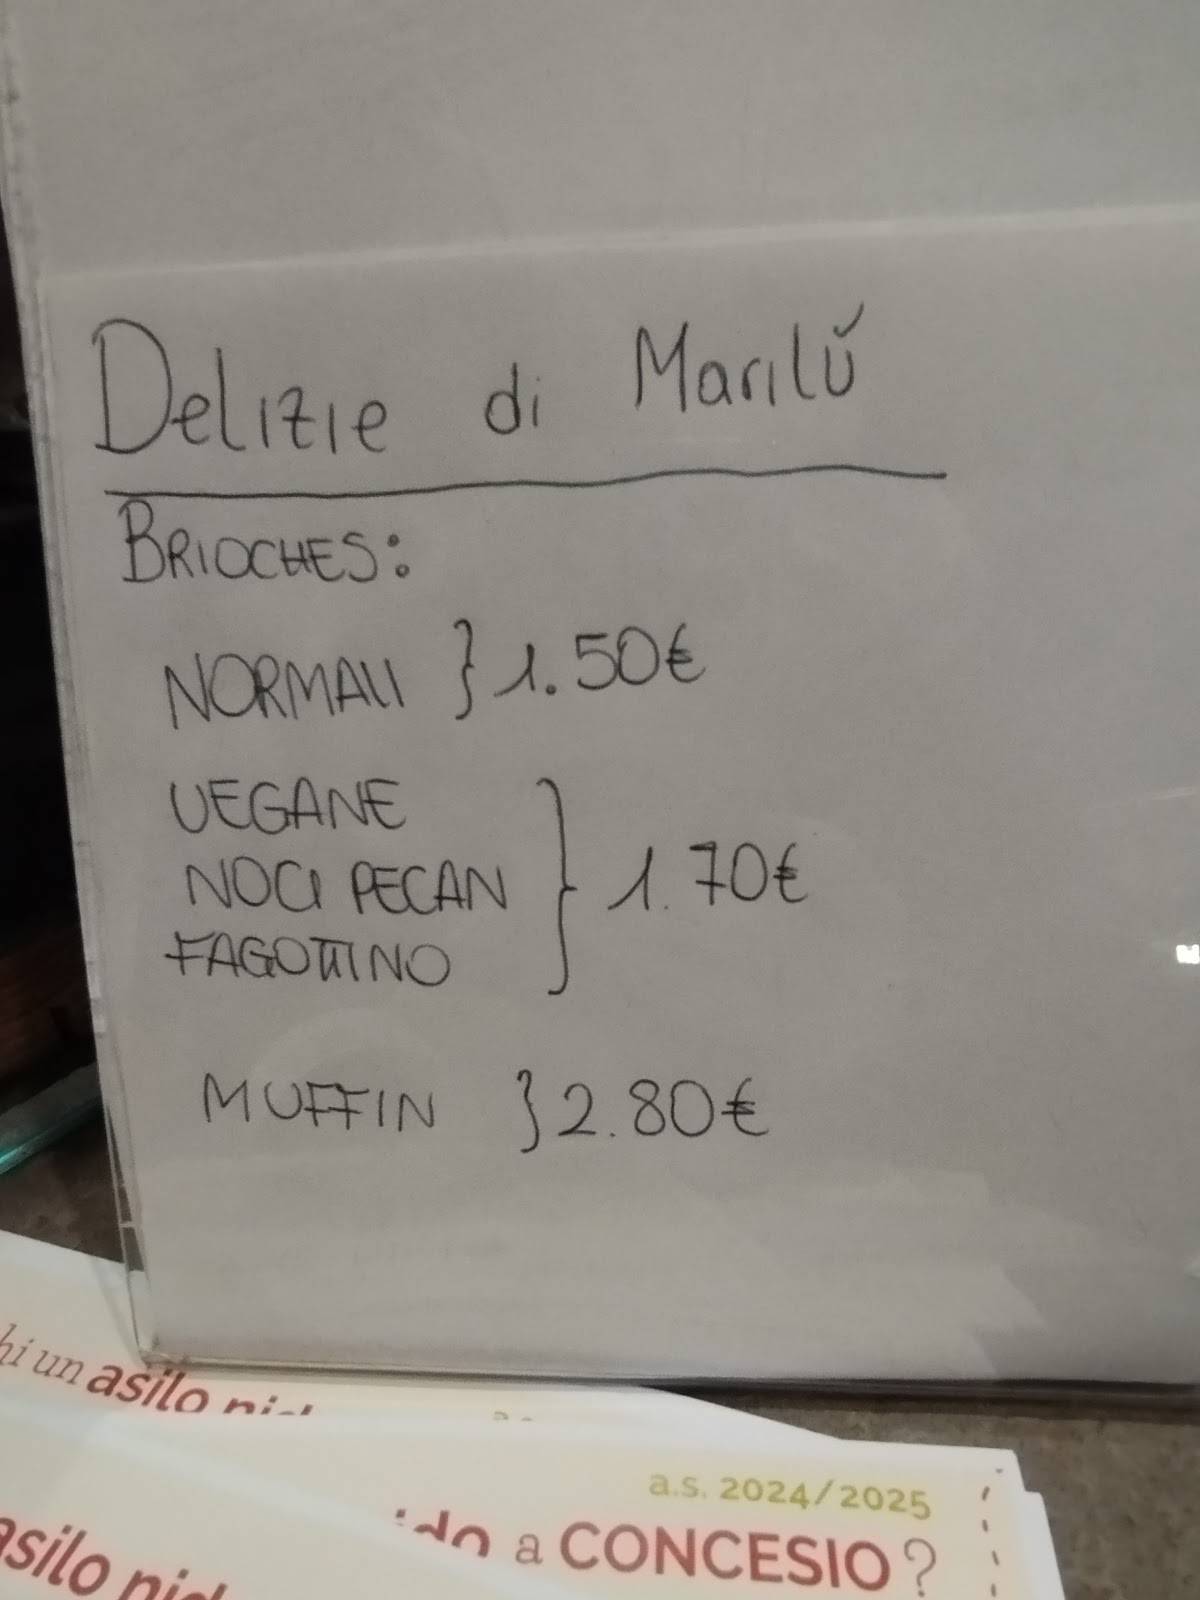 Delizie di Marilú
BRIOCHES:
NORMALI } 1.50€
VEGANE
NOCI PECAN } 1.70€
FAGOTTINO
MUFFIN } 2.80€
un asilo
a.s. 2024/2025
a CONCESIO?
asilo